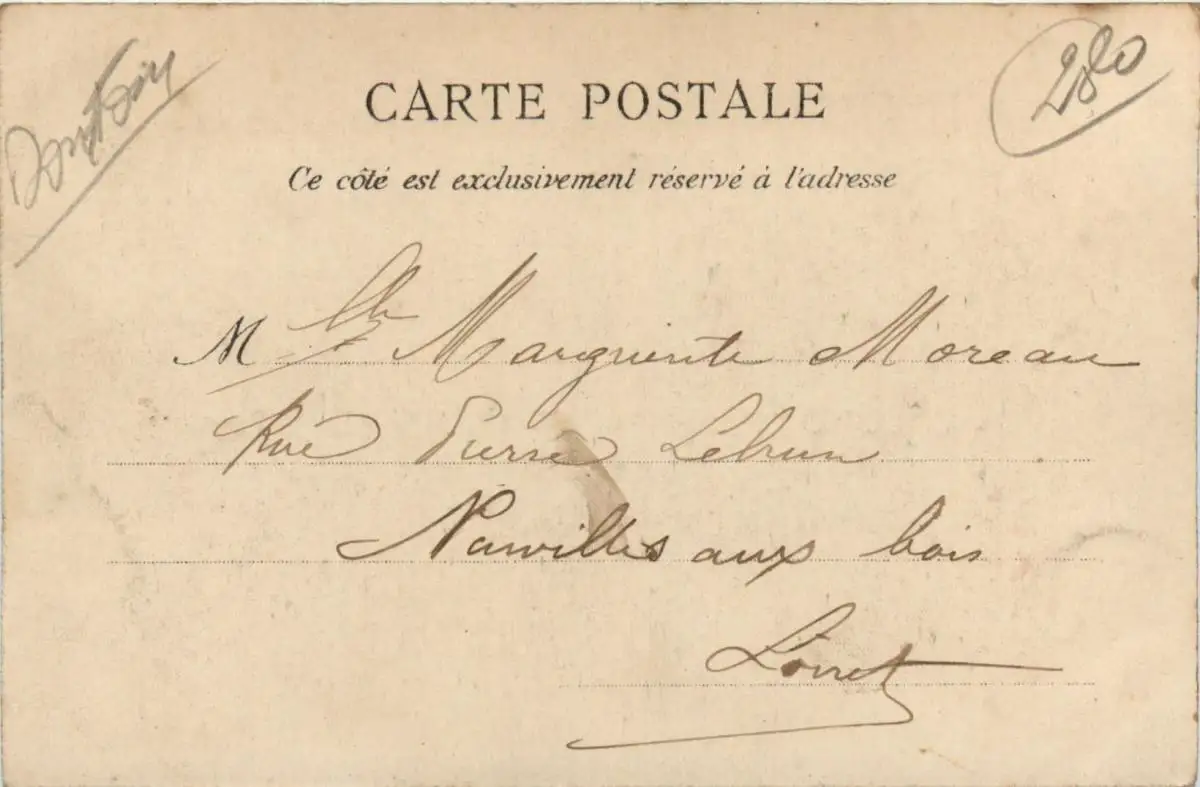 Pontoin
280
CARTE POSTALE
Ce côté est exclusivement réservé à l'adresse
Mlle Marguerite Moreau
Rue Pierre Lebrun
Neuvilles aux bois
Loiret